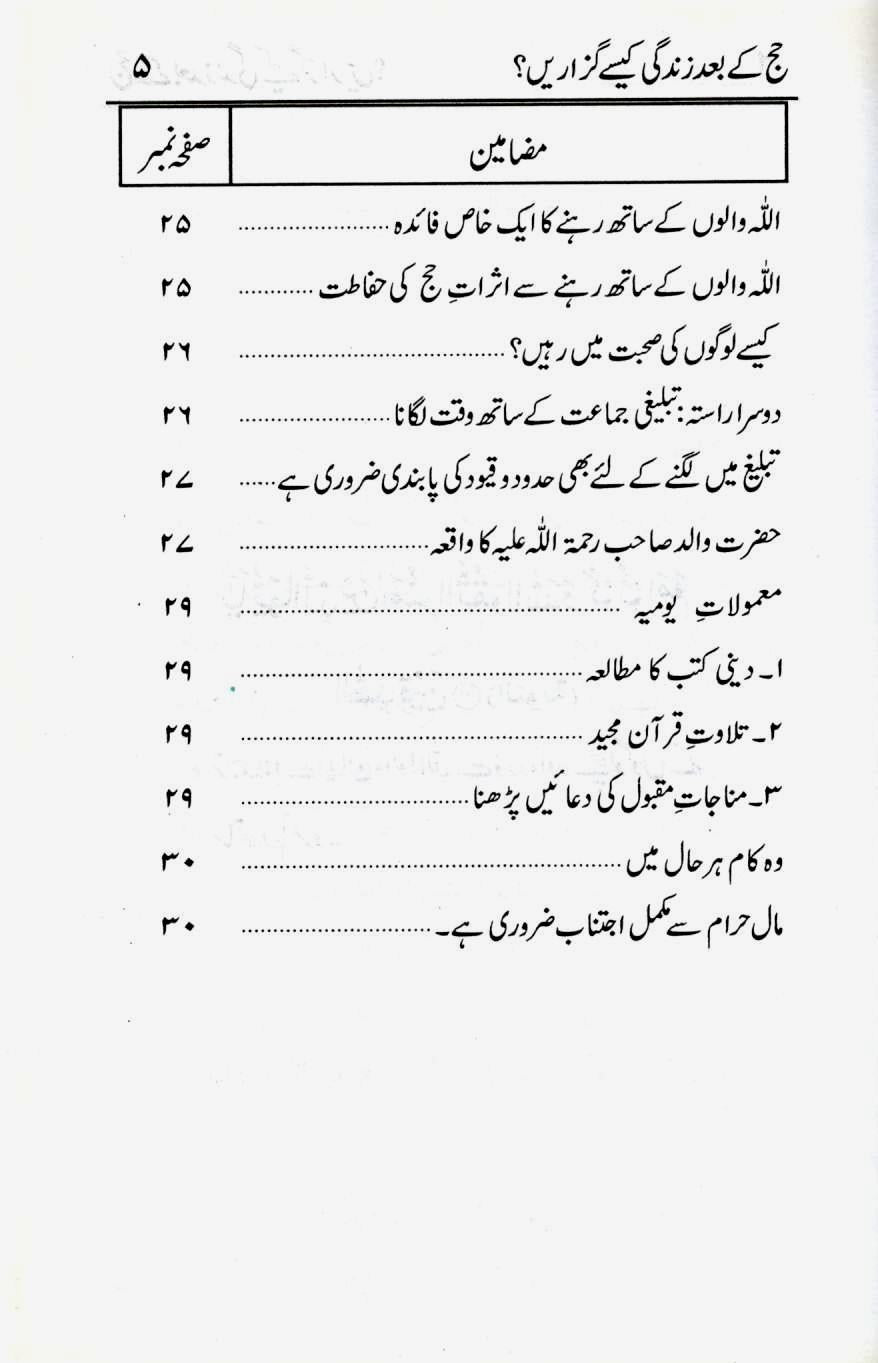 حج کے بعد زندگی کیسے گزاریں؟ ۵
مضامین صفحہ نمبر
اللہ والوں کے ساتھ رہنے کا ایک خاص فائدہ ........................ ۲۵
اللہ والوں کے ساتھ رہنے سے اثراتِ حج کی حفاطت ............ ۲۵
کیسے لوگوں کی صحبت میں رہیں؟ ........................................ ۲۶
دوسرا راستہ: تبلیغی جماعت کے ساتھ وقت لگانا ........................ ۲۶
تبلیغ میں لگنے کے لئے بھی حدود و قیود کی پابندی ضروری ہے ...... ۲۷
حضرت والد صاحب رحمۃ اللہ علیہ کا واقعہ .............................. ۲۷
معمولاتِ یومیہ ............................................................ ۲۹
۱۔ دینی کتب کا مطالعہ ...................................................... ۲۹
۲۔ تلاوتِ قرآن مجید ...................................................... ۲۹
۳۔ مناجاتِ مقبول کی دعائیں پڑھنا .................................... ۲۹
وہ کام ہر حال میں ............................................................ ۳۰
مال حرام سے مکمل اجتناب ضروری ہے۔ .............................. ۳۰